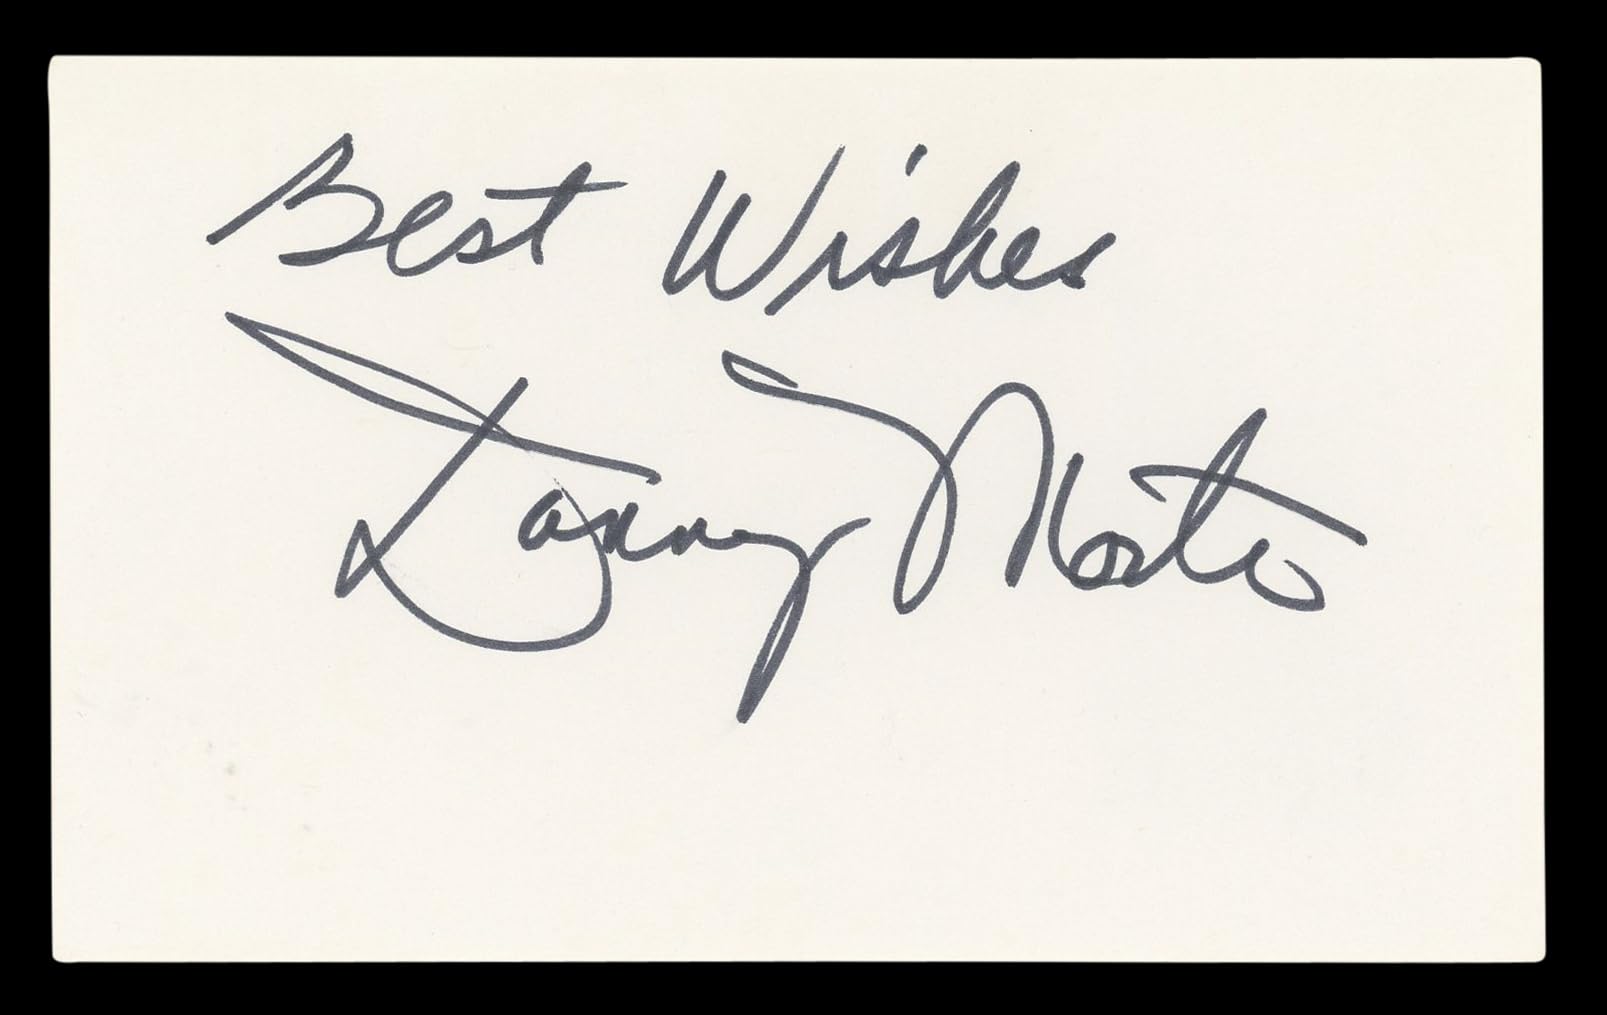 Best Wishes
Danny Morton